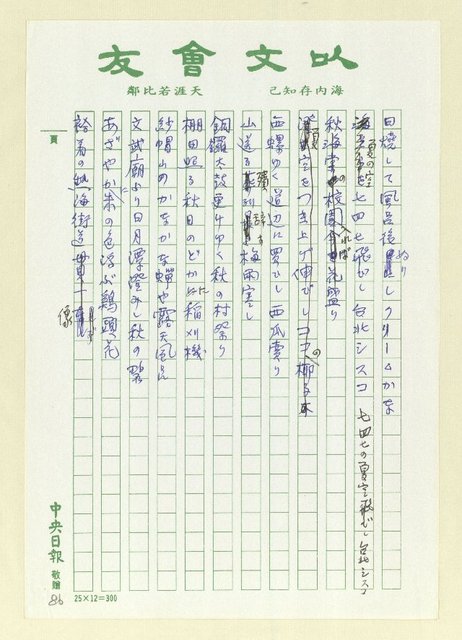 以文會友
海內存知己
天涯若比鄰
日焼して風呂後ぬりしクリームかな
夏の空
七四七飛びし台北シスコ
七四七の夏空飛びし台北シスコ
秋海棠の校園入れば花盛り
空をつき上げ伸びしココの椰子
西螺ゆく道辺に買ひし西瓜売り
山送る 梅雨寒し
銅鑼太鼓運びゆく秋の村祭り
棚田照る秋日のどかに稲刈機
紗帽山のかなかな蝉や露天風呂
文武廟より日月潭澄みし秋の翳
あざやかに朱の色浮ぶ鶏頭花
袴着の熱海街道貫一像
頁
中央日報
敬贈
86
25×12=300